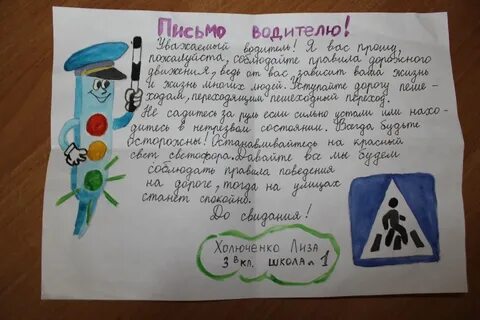 Письмо водителю!
Уважаемый водитель! Я вас прошу,
пожалуйста, соблюдайте правила дорожного
движения, ведь от вас зависит ваша жизнь
и жизнь многих людей. Уступайте дорогу пеше-
ходам, переходящим пешеходный переход.
Не садитесь за руль если сильно устали или нахо-
дитесь в нетрезвом состоянии. Всегда будьте
осторожны! Останавливайтесь на красный
свет светофора. Давайте все мы будем
соблюдать правила поведения
на дороге, тогда на улицах
станет спокойно.
До свидания!
Холюченко Лиза
3 в кл. школа № 1